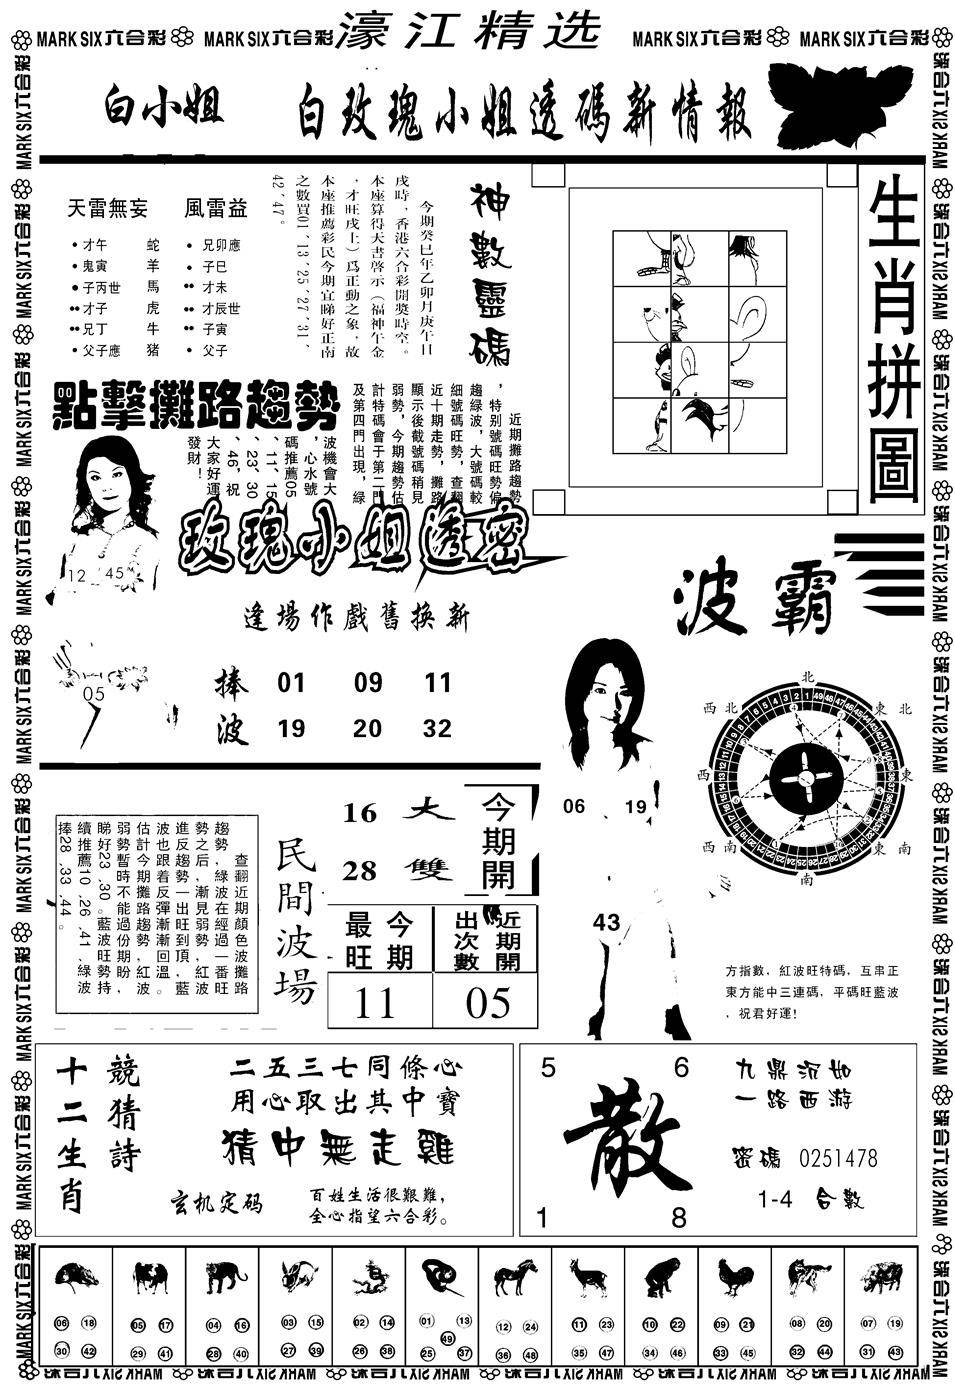 濠江精选
MARK SIX六合彩 MARK SIX六合彩 MARK SIX六合彩 MARK SIX六合彩
白小姐 白玫瑰小姐透碼新情報
天雷無妄 風雷益
才午 蛇 兄卯應
鬼寅 羊 子巳
子丙世 馬 才未
才子 虎 才辰世
兄丁 牛 子寅
父子應 猪 父子
神數靈碼
今期癸巳年乙卯月庚午日
戌時，香港六合彩開獎時空。
本座算得天書啓示（福神午金
，才旺戌上）爲正動之象，故
本座推薦彩民今期宜睇好正南
之數買01、13、25、27、31、
42、47。
生肖拼圖
點擊攤路趨勢
近期攤路趨勢
，特别號碼旺勢偏
趨綠波，大號碼較
細號碼旺勢，查翻
近十期走勢，攤路
顯示後截號碼稍見
弱勢，今期趨勢估
計特碼會于第二門
及第四門出現，綠
波機會大
，心水號
碼推薦05
、11、15
、23、30
、46，祝
大家好運
發財！
12 45
05
玫瑰小姐透密
逢場作戲舊換新
捧 01 09 11
波 19 20 32
波霸
北
西北 東北
西 東
西南 東南
南
06 19
43
查翻近期顏色波攤路
趨勢，綠波在經過一番旺
勢之后，漸見弱勢，紅波
進反趨勢一出旺到頂，藍
波也跟着反彈漸漸回溫。
估計今期攤路趨勢紅波
弱勢暫時不能過份期盼，
睇好23、30。藍波旺勢持
續推薦10、26、41、綠波
捧28、33、44。
民間波場
16 大 今期開
28 雙
最旺 今期 出次數 近期開
11 05
方指數，紅波旺特碼，互串正
東方能中三連碼，平碼旺藍波
，祝君好運！
十二生肖
競猜詩
二五三七同條心
用心取出其中寶
猜中無走雞
玄机定码
百姓生活很艱難，
全心指望六合彩。
5 6
散
1 8
九鼎沉如
一路西游
密碼 0251478
1-4 合數
06 18 05 17 04 16 03 15 02 14 01 13 12 24 11 23 10 22 09 21 08 20 07 19
49
30 42 29 41 28 40 27 39 26 38 25 37 36 48 35 47 34 46 33 45 32 44 31 43